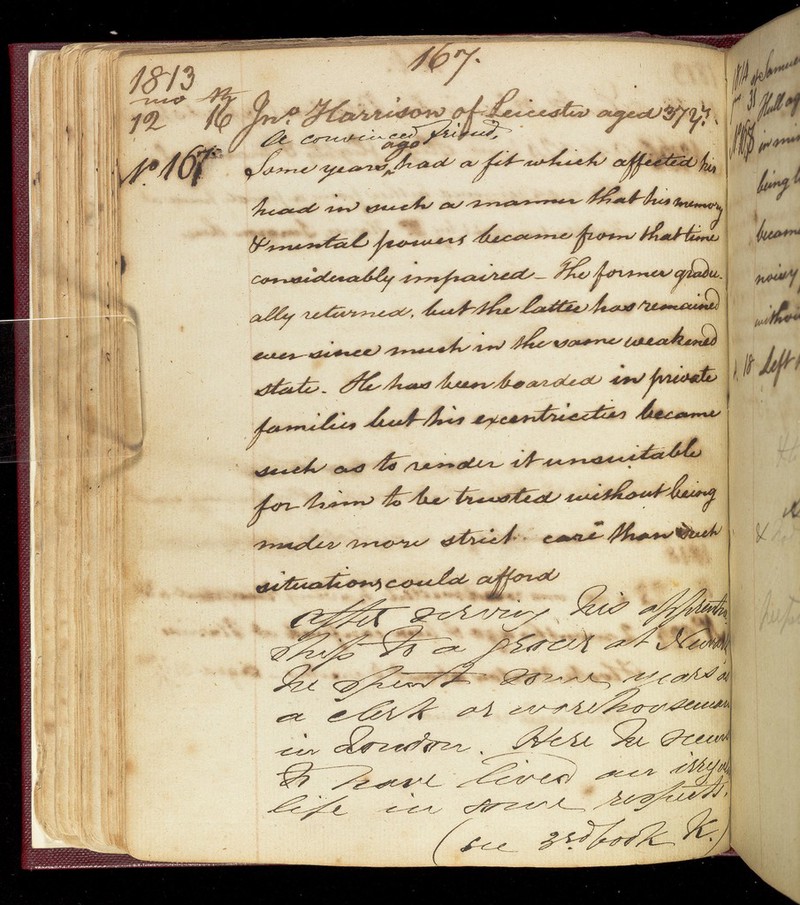 167.
1813
mo
12 16 Jno. Harrison of Leicester aged 37 yrs.
A convinced Friend,
No 167 Some years ago had a fit which affected his
head in such a manner that his memory
& mental powers became from that time
considerably impaired - The former gradu-
ally returned, but the latter has remained
ever since much in the same weakened
state. He has been boarded in private
families but his excentricities became
such as to render it unsuitable
for him to be trusted without being
under more strict care than such
situations could afford
after serving his apprentice
ship to a grocer at Newark
he spent some years as
a clerk or warehouseman
in London. Here he seems
to have lived an irregular
life in some respects.
(see 3rd book K.)
1814
31
Hall
No 168
being
became
noisy
18 Left